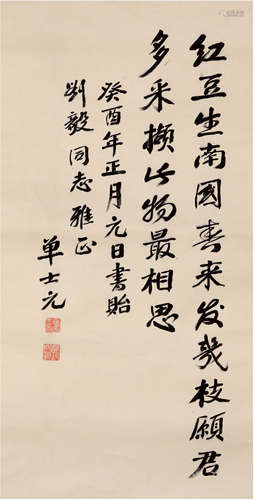 红豆生南國春来发幾枝願君
多采擷此物最相思
癸酉年正月元日書貽
刘毅同志雅正
单士元